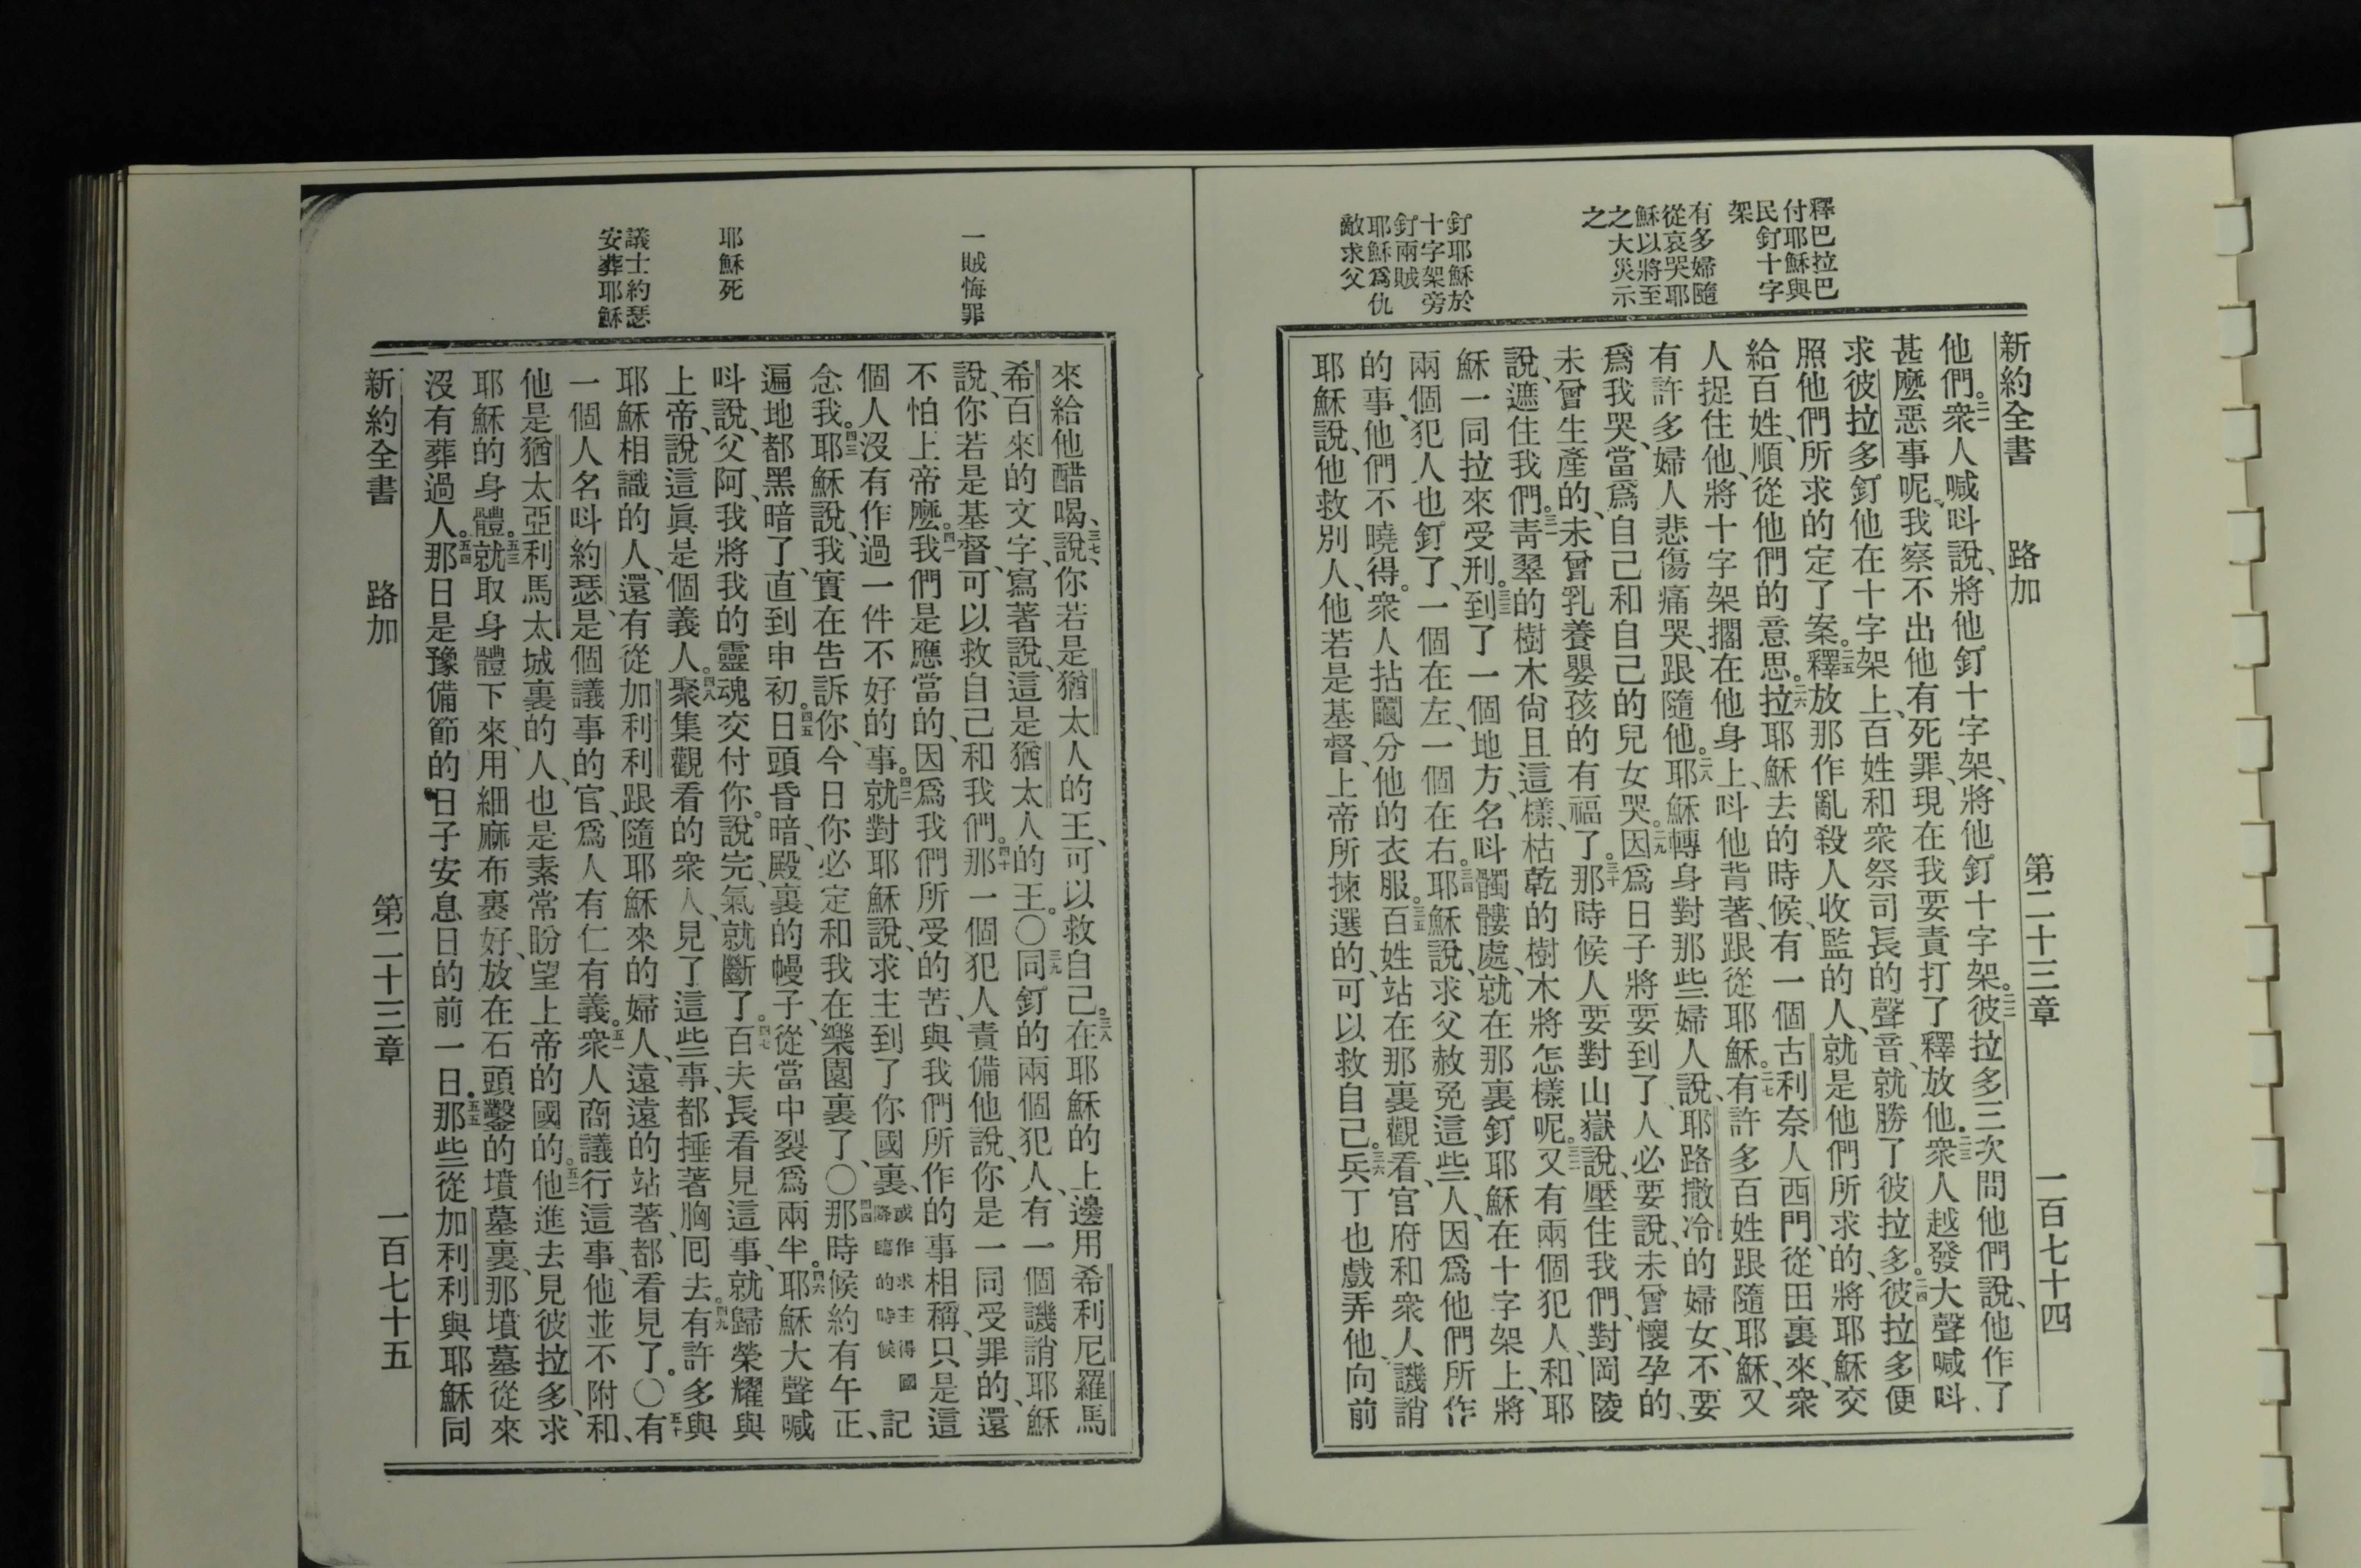 釋巴拉巴
付耶穌與
民釘十字
架
有多婦隨
從哀哭耶
穌以將至
之大災示
之
釘耶穌於
十字架旁
釘兩賊
耶穌爲仇
敵求父
新約全書 路加 第二十三章 一百七十四
他們。二一衆人喊呌說、將他釘十字架、將他釘十字架。二二彼拉多三次問他們說、他作了
甚麽惡事呢、我察不出他有死罪、現在我要責打了釋放他。二三衆人越發大聲喊呌、
求彼拉多釘他在十字架上、百姓和衆祭司長的聲音、就勝了彼拉多。二四彼拉多便
照他們所求的定了案。二五釋放那作亂殺人收監的人、就是他們所求的、將耶穌交
給百姓、順從他們的意思。二六拉耶穌去的時候、有一個古利奈人西門、從田裏來、衆
人捉住他、將十字架擱在他身上、呌他背著、跟從耶穌。二七有許多百姓跟隨耶穌、又
有許多婦人悲傷痛哭、跟隨他。二八耶穌轉身對那些婦人說、耶路撒冷的婦女、不要
爲我哭、當爲自己和自己的兒女哭。二九因爲日子將要到了、人必要說、未曾懷孕的、
未曾生產的、未曾乳養嬰孩的有福了。三十那時候人要對山嶽說、壓住我們、對岡陵
說、遮住我們。三一靑翠的樹木尙且這樣、枯乾的樹木將怎樣呢。三二又有兩個犯人、和耶
穌一同拉來受刑。三三到了一個地方、名呌髑髏處、就在那裏釘耶穌在十字架上、將
兩個犯人也釘了、一個在左、一個在右。三四耶穌說、求父赦免這些人、因爲他們所作
的事、他們不曉得。衆人拈鬮分他的衣服。三五百姓站在那裏觀看、官府和衆人譏誚
耶穌說、他救別人、他若是基督、上帝所揀選的、可以救自己。三六兵丁也戲弄他、向前
一賊悔罪
耶穌死
議士約瑟
安葬耶穌
來給他醋喝、三七說、你若是猶太人的王、可以救自己。三八在耶穌的上邊用希利尼羅馬
希百來的文字、寫著說、這是猶太人的王。〇三九同釘的兩個犯人、有一個譏誚耶穌
說、你若是基督、可以救自己和我們。四十那一個犯人責備他說、你是一同受罪的、還
不怕上帝麽。四一我們是應當的、因爲我們所受的苦、與我們所作的事相稱、只是這
個人沒有作過一件不好的事。四二就對耶穌說、求主到了你國裏、或作求主得國降臨的時候記
念我。四三耶穌說、我實在告訴你、今日你必定和我在樂園裏了、〇四四那時候約有午正、
遍地都黑暗了、直到申初。四五日頭昏暗、殿裏的幔子、從當中裂爲兩半。四六耶穌大聲喊
呌說、父阿、我將我的靈魂交付你。說完、氣就斷了。四七百夫長看見這事、就歸榮耀與
上帝、說這眞是個義人。四八聚集觀看的衆人、見了這些事、都捶著胸囘去。四九有許多與
耶穌相識的人、還有從加利利跟隨耶穌來的婦人、遠遠的站著、都看見了。〇五十有
一個人名呌約瑟、是個議事的官、爲人有仁有義。五一衆人商議行這事、他並不附和、
他是猶太亞利馬太城裏的人、也是素常盼望上帝的國的。五二他進去見彼拉多、求
耶穌的身體。五三就取身體下來、用細麻布裹好、放在石頭鑿的墳墓裏、那墳墓從來
沒有葬過人。五四那日是豫備節的日子安息日的前一日。五五那些從加利利與耶穌同
新約全書 路加 第二十三章 一百七十五